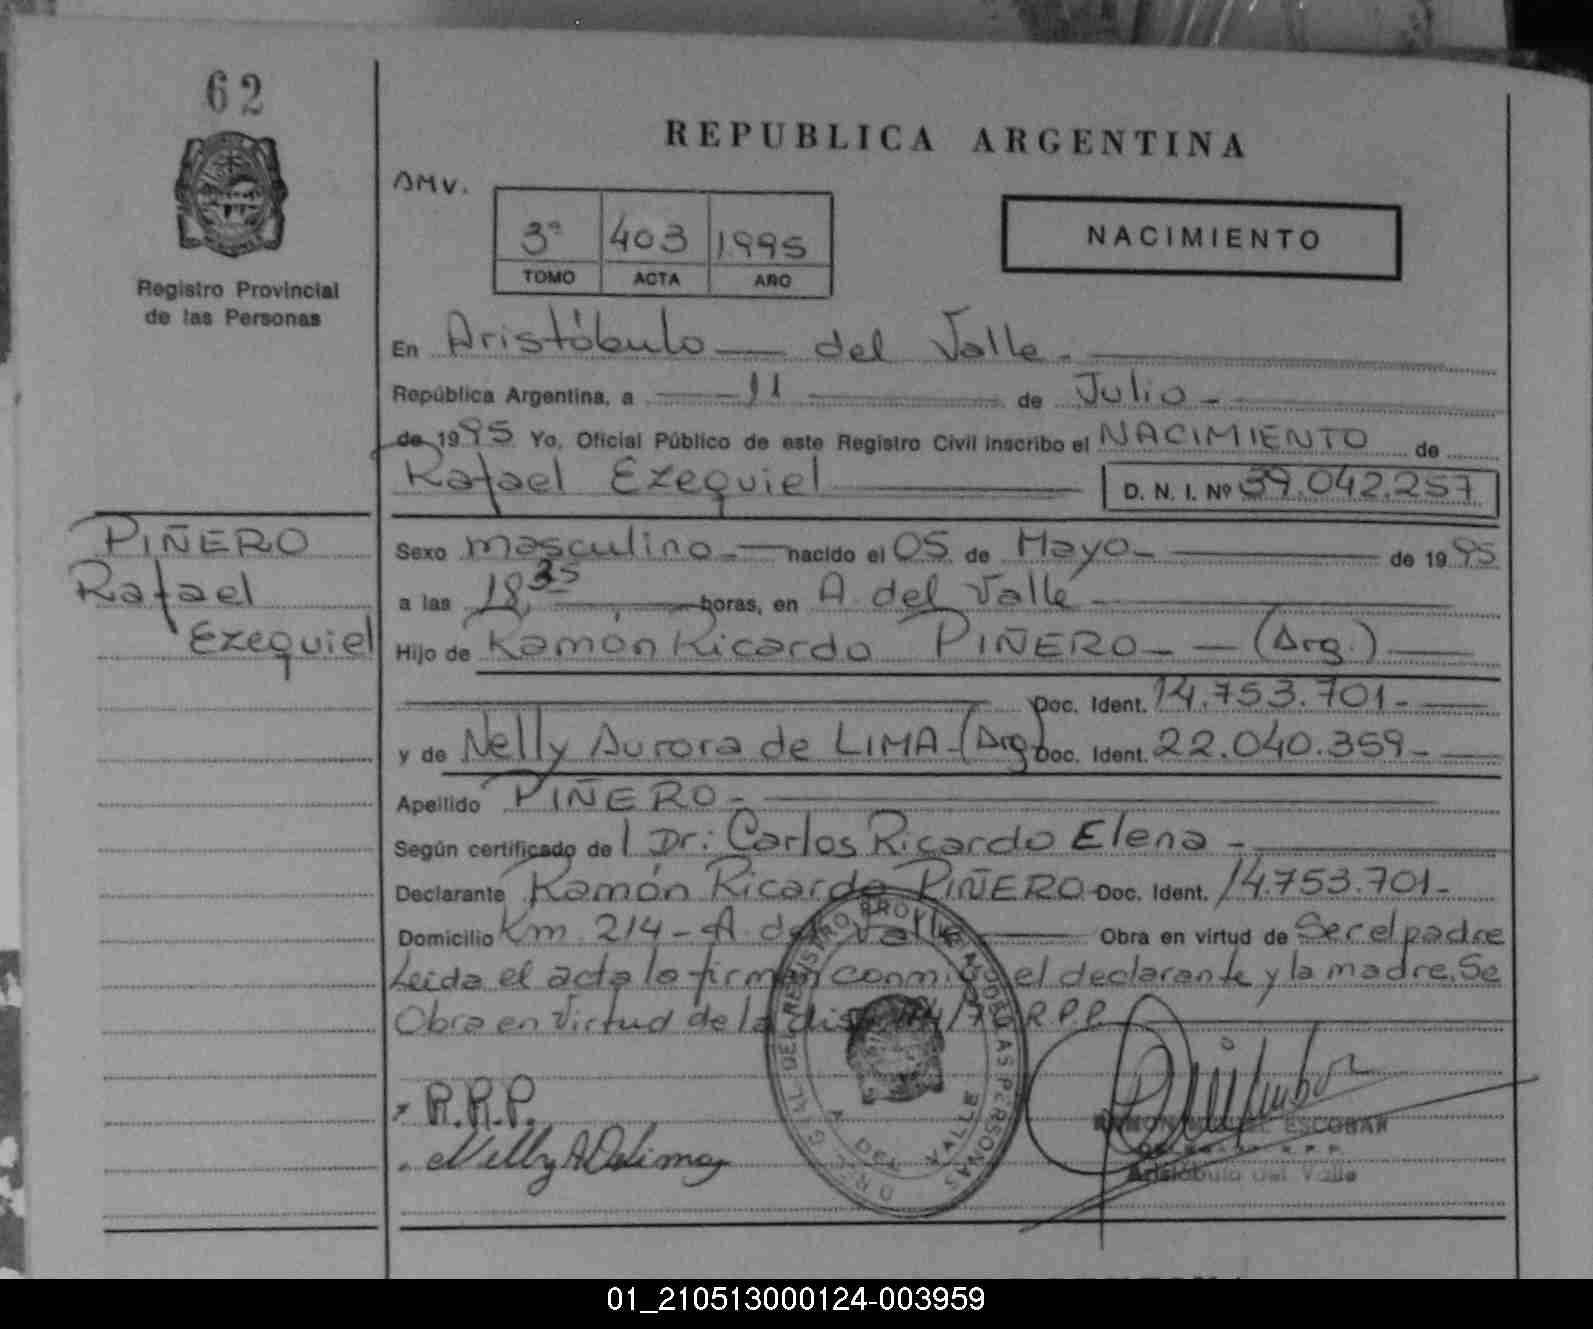 62
Registro Provincial
de las Personas
PIÑERO
Rafael
Ezequiel
REPUBLICA ARGENTINA
AMV.
3º 403 1995
TOMO ACTA AÑO
NACIMIENTO
En Aristóbulo del Valle.
República Argentina, a 11 de Julio
de 1995 Yo, Oficial Público de este Registro Civil inscribo el NACIMIENTO de
Rafael Ezequiel D. N. I. Nº 39.042.257
Sexo masculino nacido el 05 de Mayo de 1995
a las 18,35 horas, en A. del Valle
Hijo de Ramón Ricardo PIÑERO (Arg.)
Doc. Ident. 14.753.701
y de Nelly Aurora de LIMA (Arg) Doc. Ident. 22.040.359
Apellido PIÑERO
Según certificado de l Dr: Carlos Ricardo Elena
Declarante Ramón Ricardo PIÑERO Doc. Ident. 14.753.701
Domicilio Km 214 - A. del Valle Obra en virtud de Ser el padre
Leida el acta la firman conmigo el declarante y la madre. Se
Obra en Virtud de la R.P.P.
R.R.P.
Nelly A Delima
ESCOBAR
Aristóbulo del Valle
REGISTRO PROVINCIAL DE LAS PERSONAS
A. DEL VALLE
01_210513000124-003959